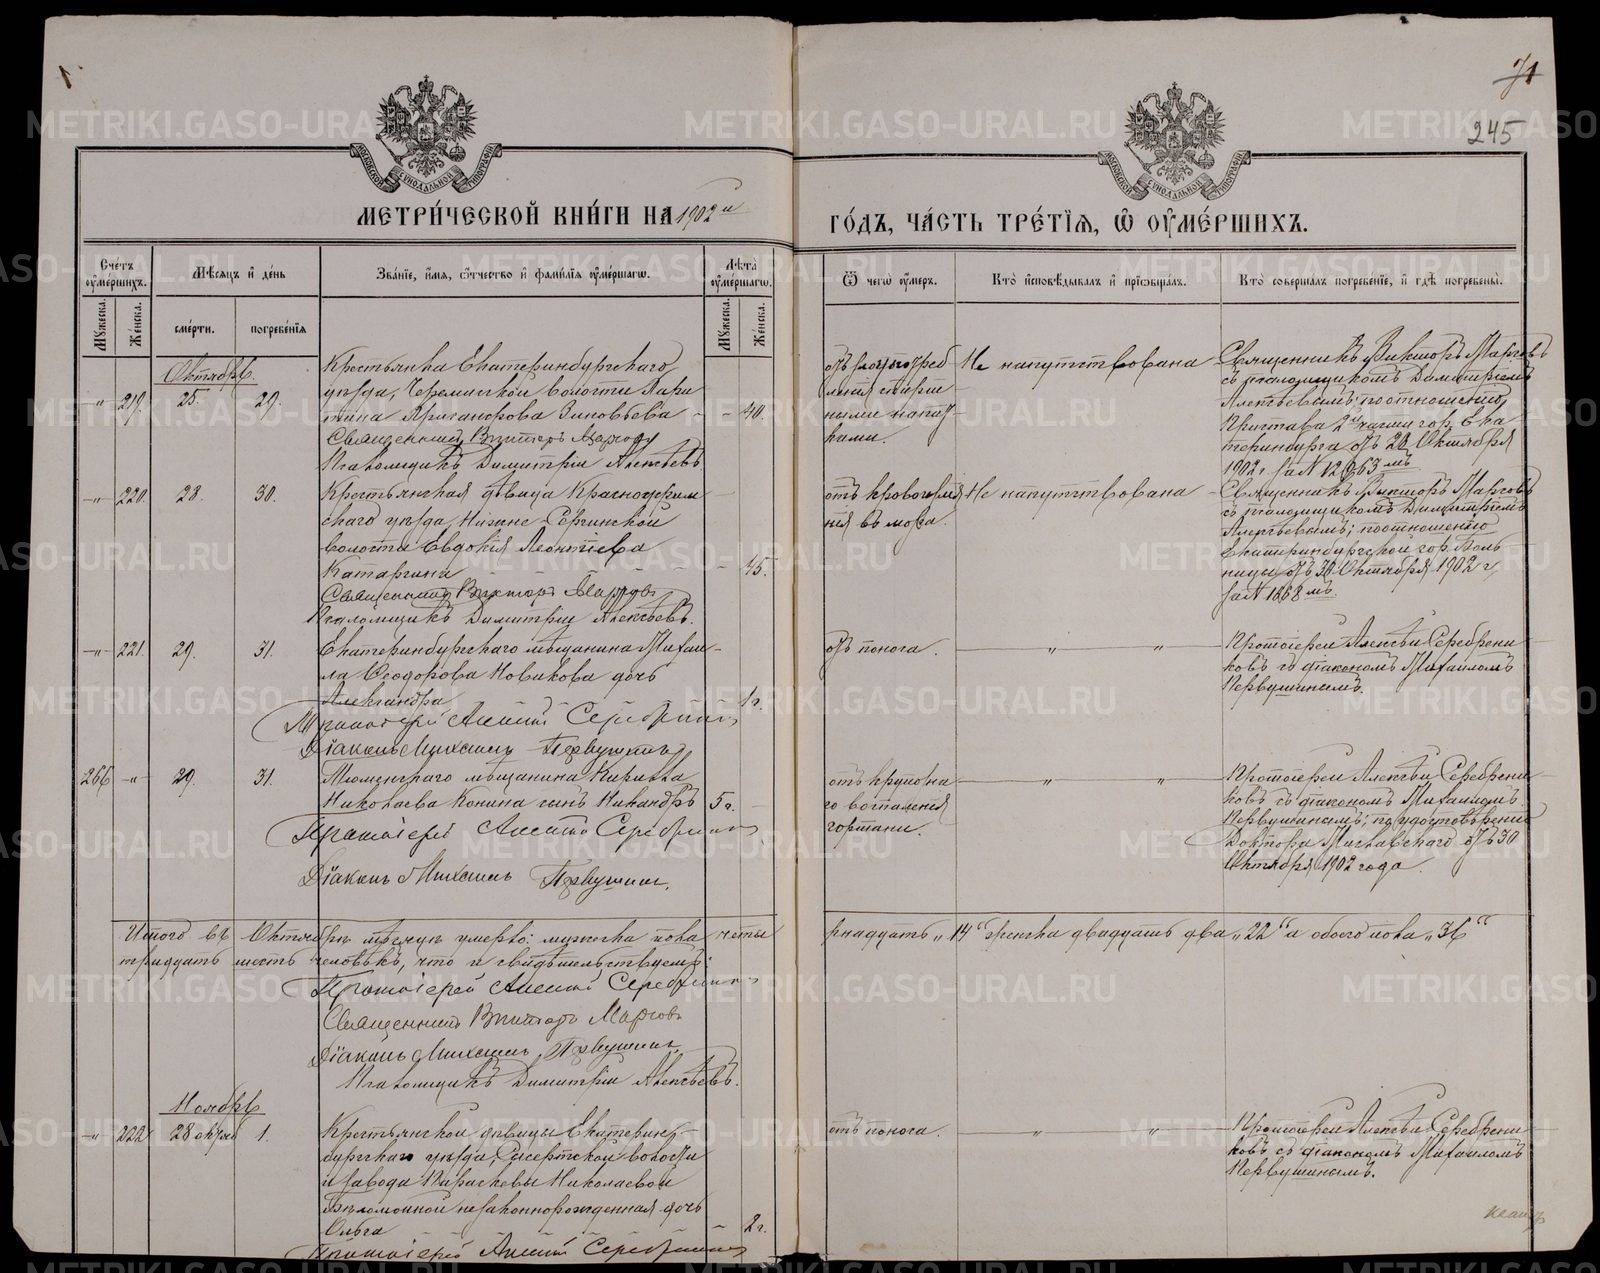 1
71
245
МЕТРИ́ЧЕСКОЙ КНИ́ГИ НА 1902 й
ГО́ДЪ, ЧА́СТЬ ТРЕ́ТІѦ, Ѽ ОУМЕ́РШИХЪ.
Сче́тъ оуме́ршихъ.
Мѣ́сяцъ и де́нь
Зва́нїе, и́мя, ѻ҆́тчество и фамилїя оуме́ршагѡ.
Лѣта̀ оуме́ршагѡ.
Ѿ чегѡ̀ оу́меръ.
Кто̀ и҆сповѣ́дывалъ и҆ прїѡбща́лъ.
Кто̀ соверша́лъ погребе́нїе, и҆ гдѣ̀ погребены̀.
Мꙋ́жеска.
Же́нска.
сме́рти.
погребе́нїя
Мꙋ́жеска.
Же́нска.
Октябрь
219. 25. 29.
Крестьянка Екатеринбургскаго
уѣзда,
волости
Зиновьева 40.
Священникъ Викторъ
Псаломщикъ Димитрій Алексѣевъ
Не напутствована
Священникъ Викторъ
съ псаломщикомъ Димитріемъ
Алексѣевымъ; по отношенію
Пристава 2й части гор. Ека
теринбурга отъ 28 Октября
1902 г. за N
220. 28. 30.
Крестьянская дѣвица Красноуфим
скаго уѣзда, Нижне-Сергинской
волости Евдокія Леонтіева
Катаргина 45.
Священникъ Викторъ
Псаломщикъ Димитрій Алексѣевъ.
отъ кровоизлія
нія въ мозгъ.
Не напутствована
Священникъ Викторъ
съ псаломщикомъ Димитріемъ
Алексѣевымъ; по отношенію
Екатеринбургской гор. Боль
ницы отъ 30 Октября 1902 г.
за N 1668 мъ.
221. 29. 31.
Екатеринбургскаго мѣщанина Михаи
ла Ѳеодорова Новикова дочь
Александра 1 г.
Протоіерей Алексій Серебрениковъ
Діаконъ Михаилъ Первушинъ
отъ поноса.
Протоіерей Алексѣй Серебрени
ковъ съ діакономъ Михаиломъ
Первушинымъ.
266 29. 31.
Тюменскаго мѣщанина Кирилла
Николаева Конина сынъ Никандръ 5 г.
Протоіерей Алексій Серебрениковъ
Діаконъ Михаилъ Первушинъ.
отъ крупозна
го воспаленія
гортани.
Протоіерей Алексѣй Серебрени
ковъ съ діакономъ Михаиломъ
Первушинымъ; по удостовѣренію
Доктора отъ 30
Октября 1902 года.
Итого въ Октябрѣ мѣсяцѣ умерло: мужеска пола четы
рнадцать „14“ женска двадцать два „22“ а обоего пола „36“
тридцать шесть человѣкъ, что и свидѣтельствуемъ:
Протоіерей Алексій Серебрениковъ
Священникъ Викторъ
Діаконъ Михаилъ Первушинъ.
Псаломщикъ Димитрій Алексѣевъ.
Ноябрь
222 28 окряб 1.
Крестьянской дѣвицы Екатерин
бургскаго уѣзда, Сысертской волости
и завода Параскевы Николаевой
незаконнорожденная дочь
Ольга 2 г.
Протоіерей Алексій Серебрениковъ
отъ поноса.
Протоіерей Алексѣй Серебрени
ковъ съ діакономъ Михаиломъ
Первушинымъ.
METRIKI.GASO-URAL.RU